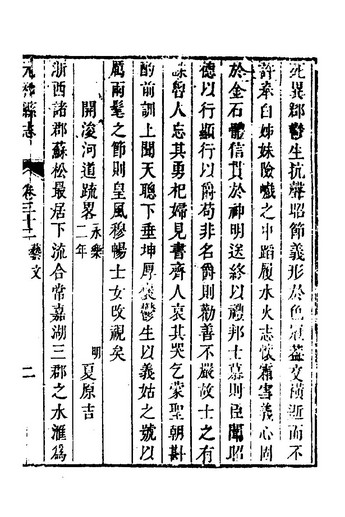 死異郡鬱生抗聲昭節義形於色冠蓋交橫逝而不
許奉白姊妹險巇之中蹈履水火志懷霜雪義心固
於金石體信貫於神明送終以禮邦士慕則臣聞昭
德以行顯行以爵苟非名爵則勸善不嚴故士之有
誄魯人志其勇杞婦見書齊人哀其哭乞蒙聖朝斟
酌前訓上開天聰下垂坤厚褒鬱生以義姑之號以
厲兩髦之節則皇風穆暢士女改視矣
開浚河道疏畧 永樂二年 明 夏原吉
浙西諸郡蘇松最居下流合常嘉湖三郡之水滙爲
縣志 卷三十二 藝文 二